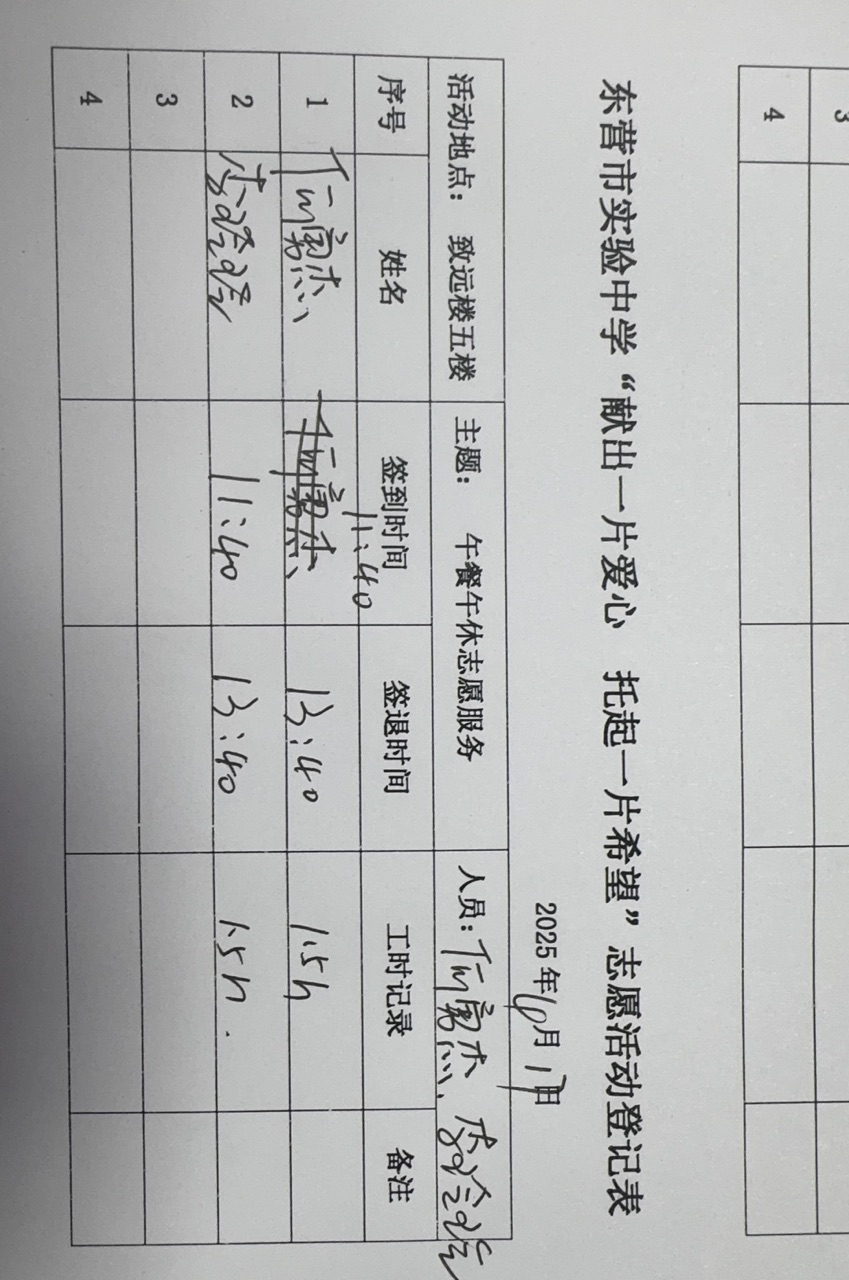 3
4
东营市实验中学“献出一片爱心 托起一片希望”志愿活动登记表
2025年10月17日
活动地点: 致远楼五楼 主题: 午餐午休志愿服务 人员:
序号 姓名 签到时间 签退时间 工时记录 备注
1 11:40 13:40 1.5h
2 11:40 13:40 1.5h.
3
4